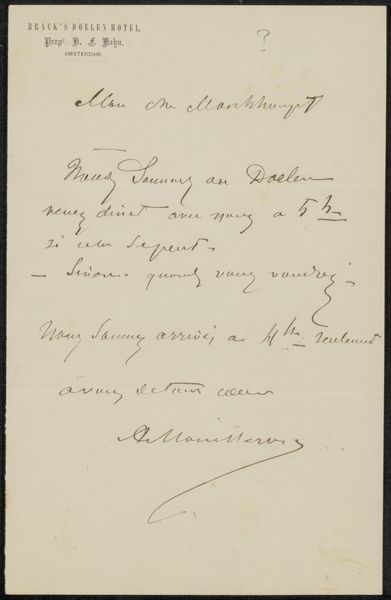 BRACK'S DOELEN HOTEL.
Propr. H. F. Hahn.
AMSTERDAM.
?
Mon cher
Nous sommes au Doelen
venez diner avec nous a 5 h
si cela se peut.
– Sinon – quand vous voudrez –
Nous sommes arrivés a 4h seulement
a vous de tout coeur